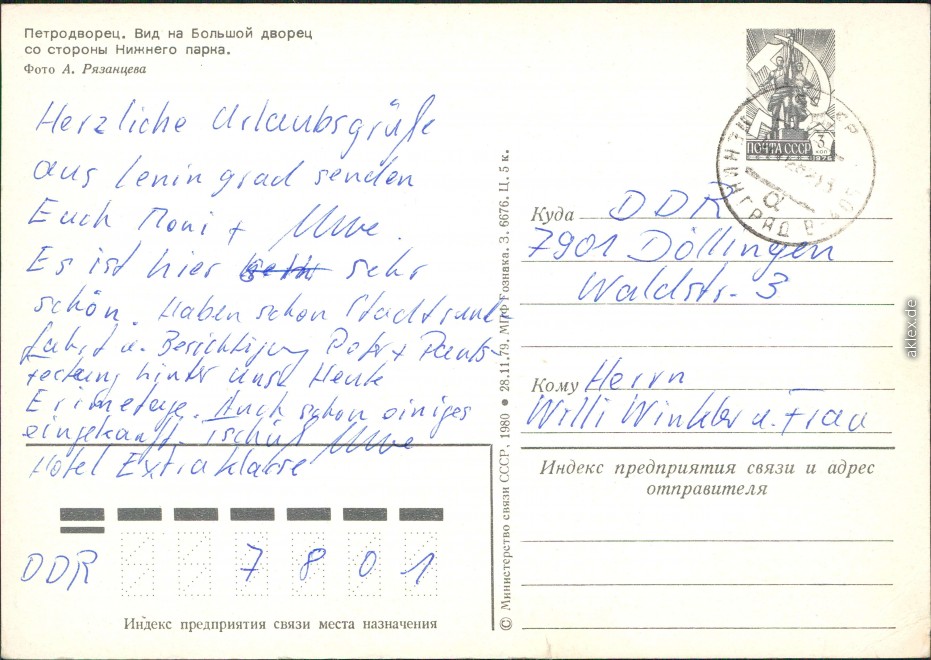 Петродворец. Вид на Большой дворец
со стороны Нижнего парка.
Фото А. Рязанцева
Herzliche Urlaubsgrüße
aus Leningrad senden
Euch Moni + Uwe.
Es ist hier sehr
schön. Haben schon Stadtrund-
fahrt u. Besichtigung Peter + Pauls-
festung hinter uns. Heute
Erimetage. Auch schon einiges
eingekauft. Tschüß Uwe
Hotel Extraklasse
DDR 7 8 0 1
Индекс предприятия связи места назначения
© Министерство связи СССР. 1980 • 28.11.79. МПФ Гознака. З. 6676. Ц. 5 к.
ПОЧТА СССР 3 КОП 1976
Куда DDR
7901 Döllingen
Waldstr. 3
Кому Herrn
Willi Winkler u. Frau
Индекс предприятия связи и адрес
отправителя
aklex.de